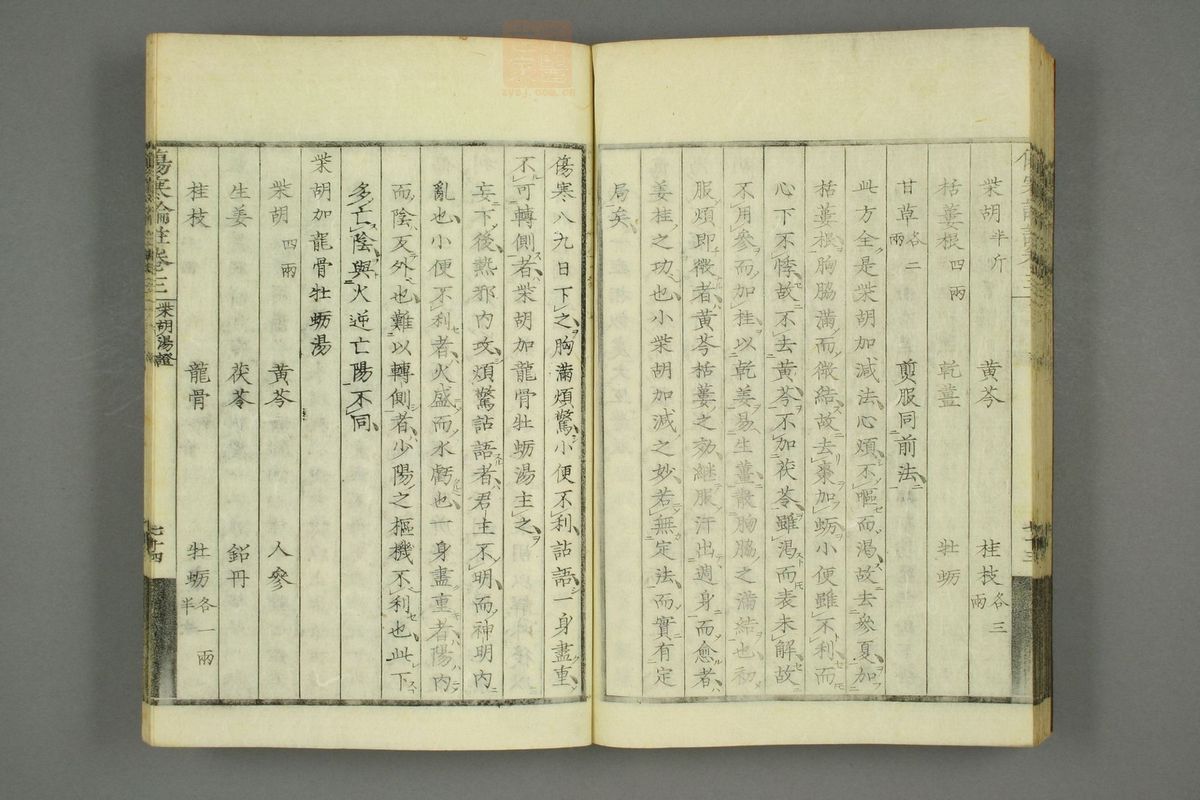 柴胡半斤　黃芩　桂枝各三兩
栝蔞根四兩　乾薑　牡蛎
甘草各二兩　煎服同前法
此方全是柴胡加減法心煩不嘔而渴故去參夏加
栝蔞根胸脇滿而微結故去棗加蛎小便雖不利而
心下不悸故不去黃芩不加茯苓雖渴而表未解故
不用參而加桂以乾姜易生薑散胸脇之滿結也初
服煩即微者黃芩栝蔞之効繼服汗出週身而愈者
姜桂之功也小柴胡加減之妙若無定法而實有定
局矣
傷寒八九日下之胸滿煩驚小便不利詀語一身盡重
不可轉側者柴胡加龍骨牡蛎湯主之
妄下後熱邪內攻煩驚詀語者君主不明而神明內
亂也小便不利者火盛而水虧也一身盡重者陽內
而陰反外也難以轉側者少陽之樞機不利也此下
多亡陰與火逆亡陽不同
柴胡加龍骨牡蛎湯
柴胡四兩　黃芩　人參
生姜　茯苓　鉛丹
桂枝　龍骨　牡蛎各一兩半
傷寒論註卷三　柴胡湯證　七十四